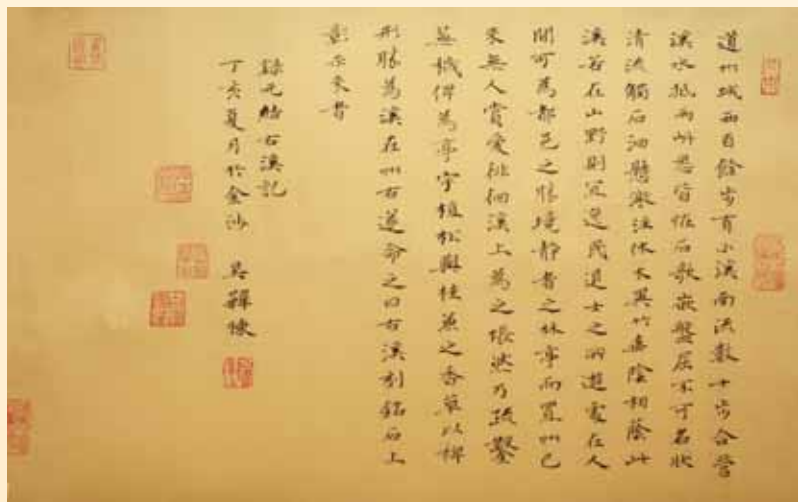 道州城西百餘步有小溪南流數十步合營
溪水抵兩岸悉皆怪石欹嵌盤屈不可名狀
清流觸石洄懸激注休木異竹垂陰相蔭此
溪若在山野則宜逸民退士之所遊處在人
間可為都邑之勝境靜者之林亭而置州已
來無人賞愛徘徊溪上為之悵然乃疏鑿
蕪穢俾為亭宇植松與桂兼之香草以裨
形勝為溪在州右遂命之曰右溪刻銘石上
彰示來者
錄元結右溪記
丁亥夏月於金沙 吳